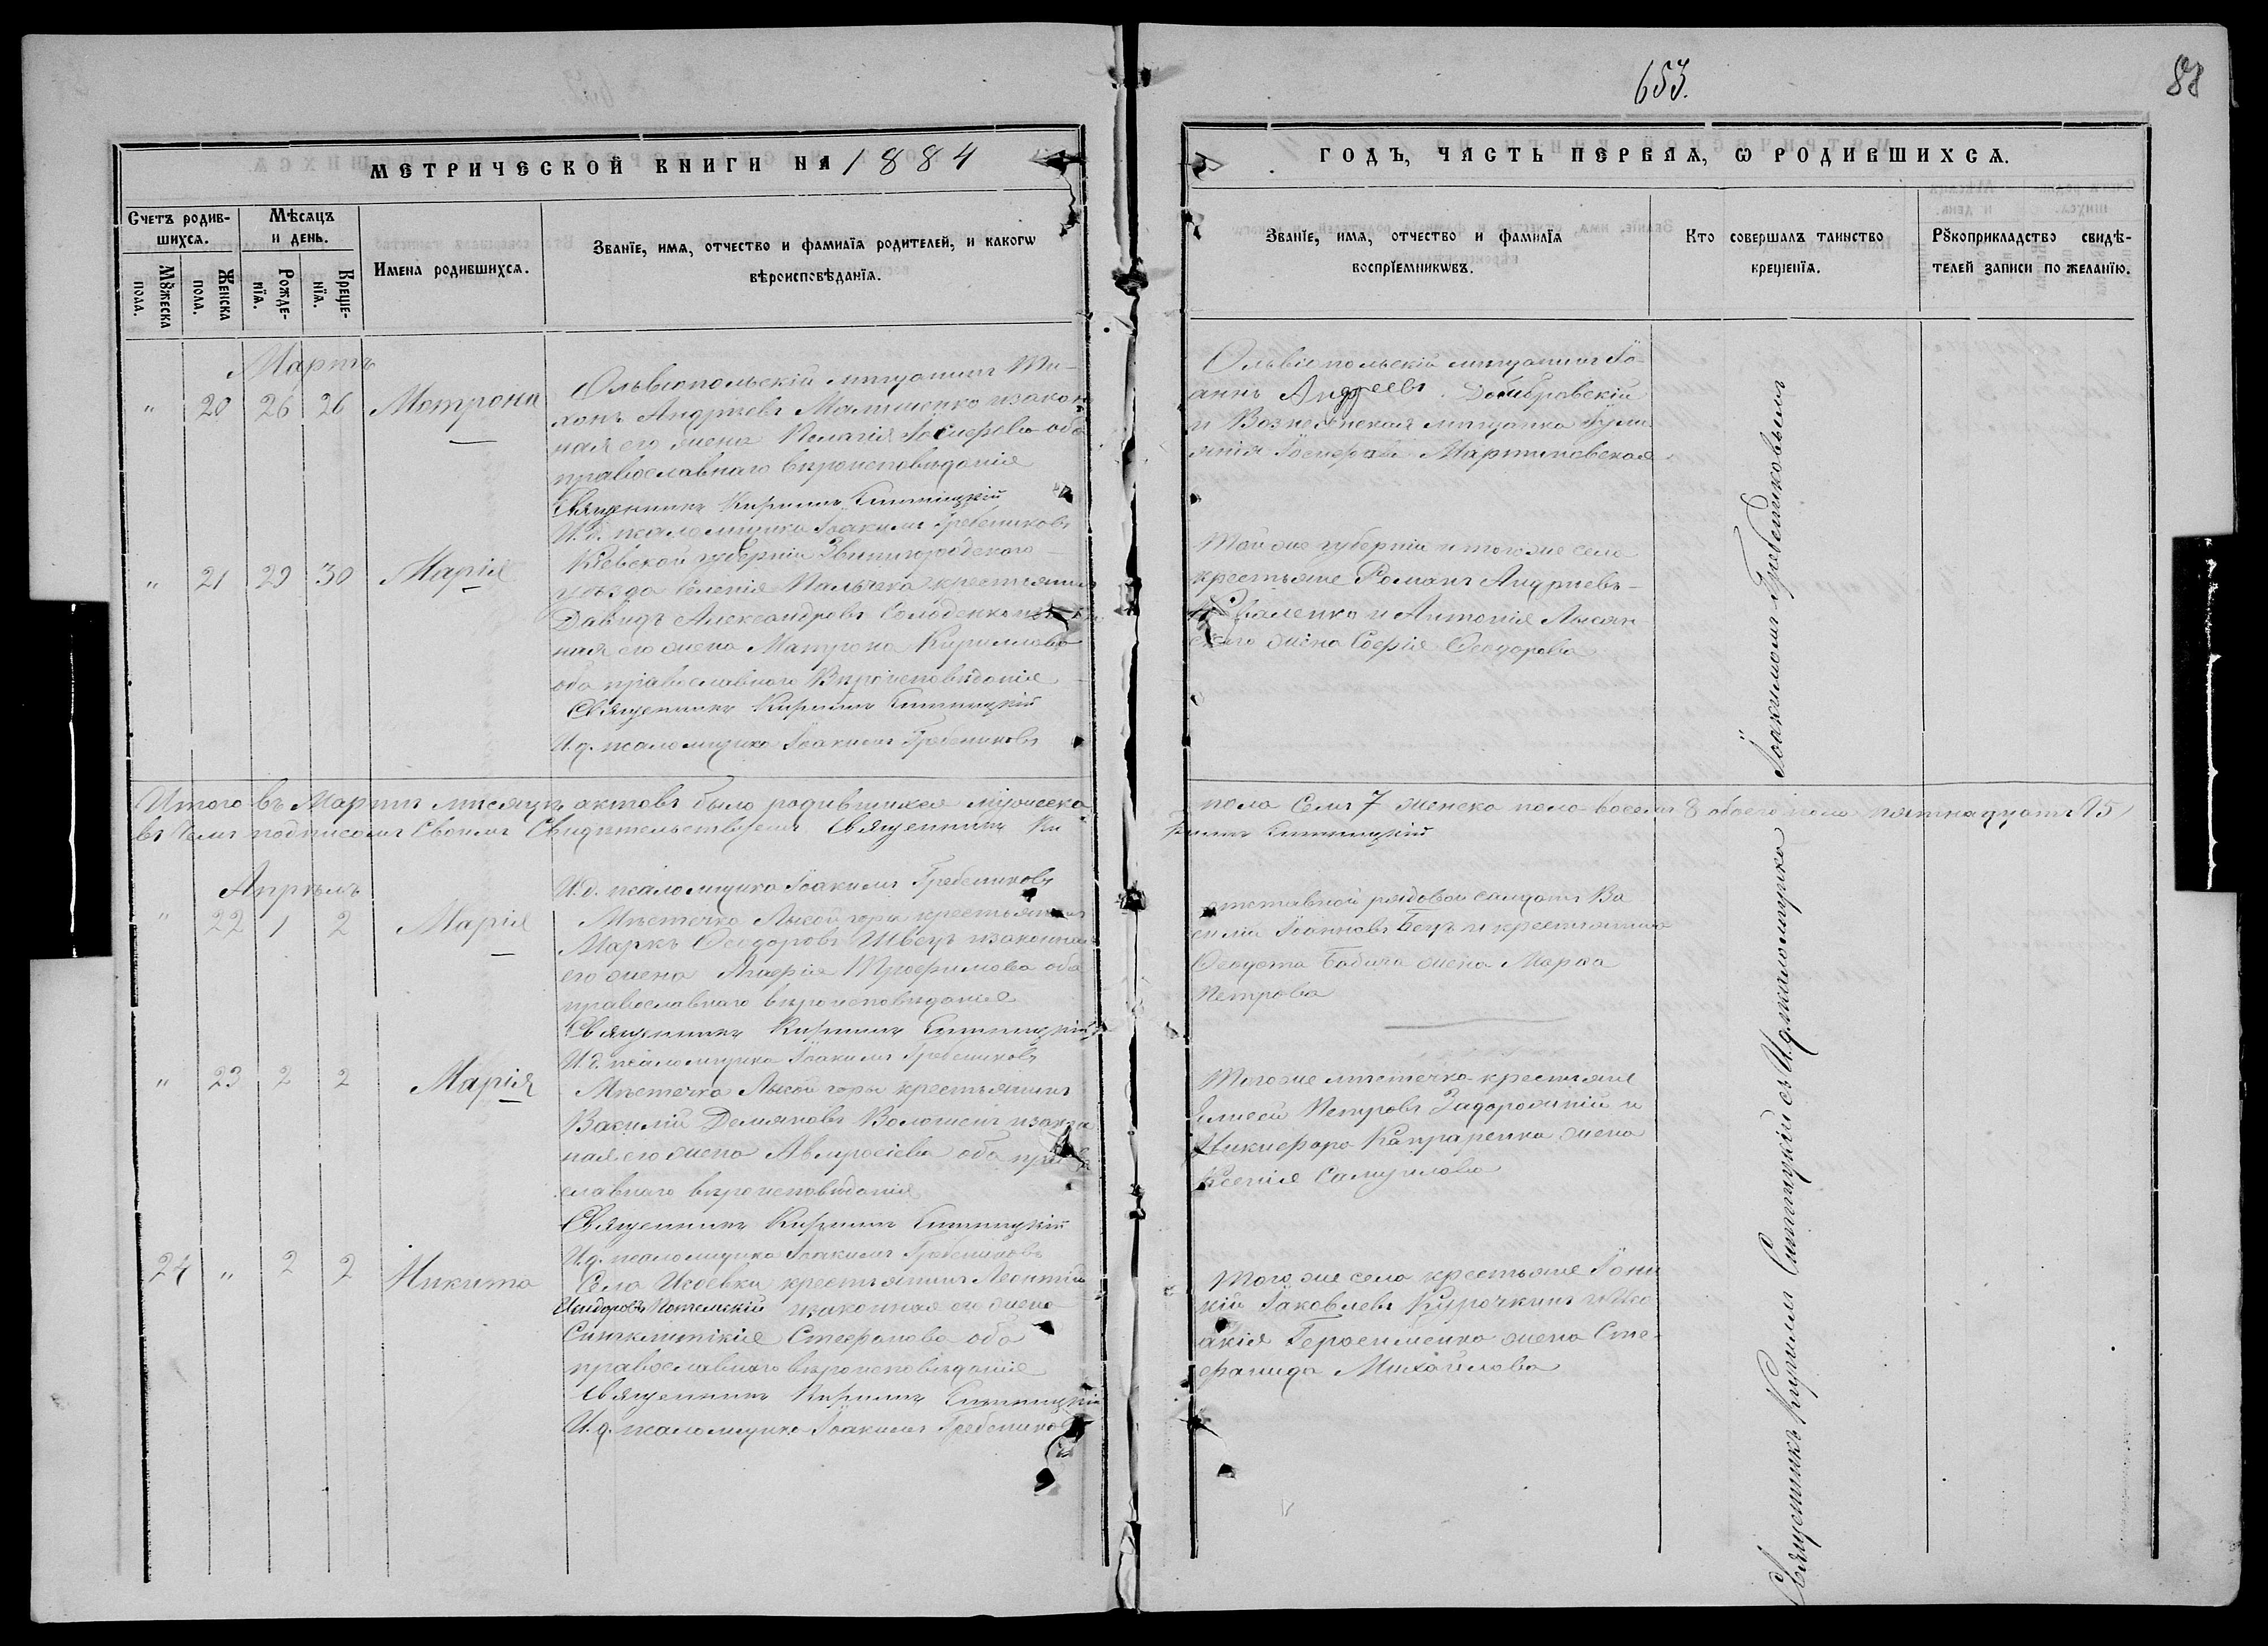 653.
88
МЕТРИЧЕСКОЙ КНИГИ НА 1884
ГОДЪ, ЧАСТЬ ПЕРВАЯ, Ѡ РОДИВШИХСѦ.
Счетъ родив-
шихсѧ.
Мѣсѧцъ
и день.
Мꙋжеска
пола.
Женска
пола.
Рожде-
нїѧ.
Креще-
нїѧ.
Имена родившихсѧ.
Званїе, имѧ, отчество и фамилїѧ родителей, и какогѡ
вѣроисповѣданїѧ.
Званїе, имѧ, отчество и фамилїѧ
воспрїемникѡвъ.
Кто совершалъ таинство
крещенїѧ.
Рꙋкоприкладство свидѣ-
телей записи по желанїю.
Мартъ
" 20 26 26 Матрона
Ольвіопольскій мѣщанинъ Ти-
хонъ Андреевъ и закон
ная его жена Пелагія Іосифова оба
православнаго вѣроисповѣданія
Священникъ Кириллъ Синницкій
И.д. псаломщика Іоакимъ Гребениковъ
Ольвіопольскій мѣщанинъ Іо-
аннъ Андреевъ Домбровскій
и Вознесенская мѣщанка Іулі
янія Іосифова Мартиновская
" 21 29 30 Марія
Кіевской губерніи Звенигородского
уѣзда Селенія Пальчка крестьянинъ
Давидъ Александровъ Солоденко и закон
ная его жена Матрона Кириллова
оба православного Вѣроисповѣданія
Священникъ Кириллъ Синницкій
И.д. псаломщика Іоакимъ Гребениковъ
Той же губерніи и того же села
крестьяне Романъ Андреевъ
и Антонія Лысян
скаго жена Софія Ѳеодорова
Итого въ Мартѣ мѣсяцѣ актовъ было родившихся мужеска
пола семь 7 женска пола восемь 8 обоего пола пятнадцать 15
въ чемъ подписомъ своимъ свидѣтельствуемъ Священникъ Ки
риллъ Синницкій
И.д. псаломщика Іоакимъ Гребениковъ
Апрѣль
" 22 1 2 Марія
Мѣстечка Лысой горы крестьянинъ
Маркъ Ѳеодоровъ Швецъ и законная
его жена Агафія Трофимова оба
православнаго вѣроисповѣданія
Священникъ Кириллъ Синницкій
И.д. псаломщика Іоакимъ Гребениковъ
отставной рядовой солдатъ Ва
силій Іоанновъ и крестьянина
Ѳеодота Бабича жена Марѳа
Петрова
" 23 2 2 Марія
Мѣстечка Лысой горы крестьянинъ
Василій Демяновъ Волошенъ и закон
ная его жена Амвросіева оба право
славнаго вѣроисповѣданія
Священникъ Кириллъ Синницкій
И.д. псаломщика Іоакимъ Гребениковъ
Того же мѣстечка крестьяне
Елисей Петровъ Задорожній и
Никифора жена
Ксенія Самуилова
24 " 2 2 Никита
Села Исаевки крестьянинъ Леонтій
Исидоровъ и законная его жена
Синклитикія Стефанова оба
православнаго вѣроисповѣданія
Священникъ Кириллъ Синницкій
И.д. псаломщика Іоакимъ Гребениковъ
Того же села крестьяне Іоан
кій Іаковлевъ Курочкинъ и
акія Герасименко жена Сте-
фанида Михайлова
Священникъ Кириллъ Синницкій съ И.д. псаломщика Іоакимомъ Гребениковымъ